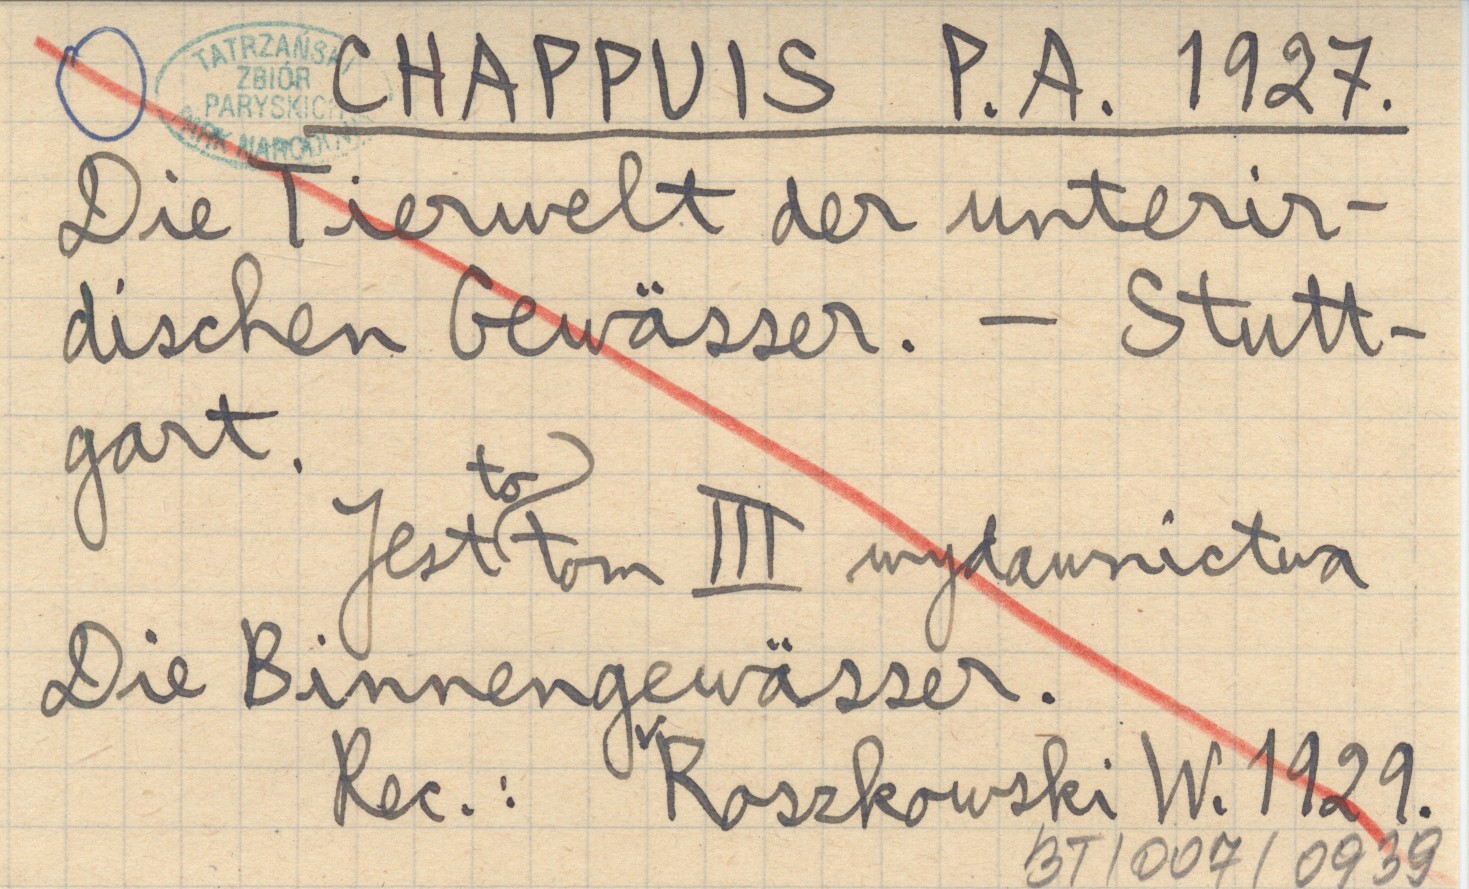 TATRZAŃSKI
ZBIÓR
PARYSKICH
PARK NARODOWY
CHAPPUIS P.A. 1927.
Die Tierwelt der unterir-
dischen Gewässer. — Stutt-
gart.
Jest to tom III wydawnictwa
Die Binnengewässer.
Rec.: Roszkowski W. 1929.
BT/007/0939